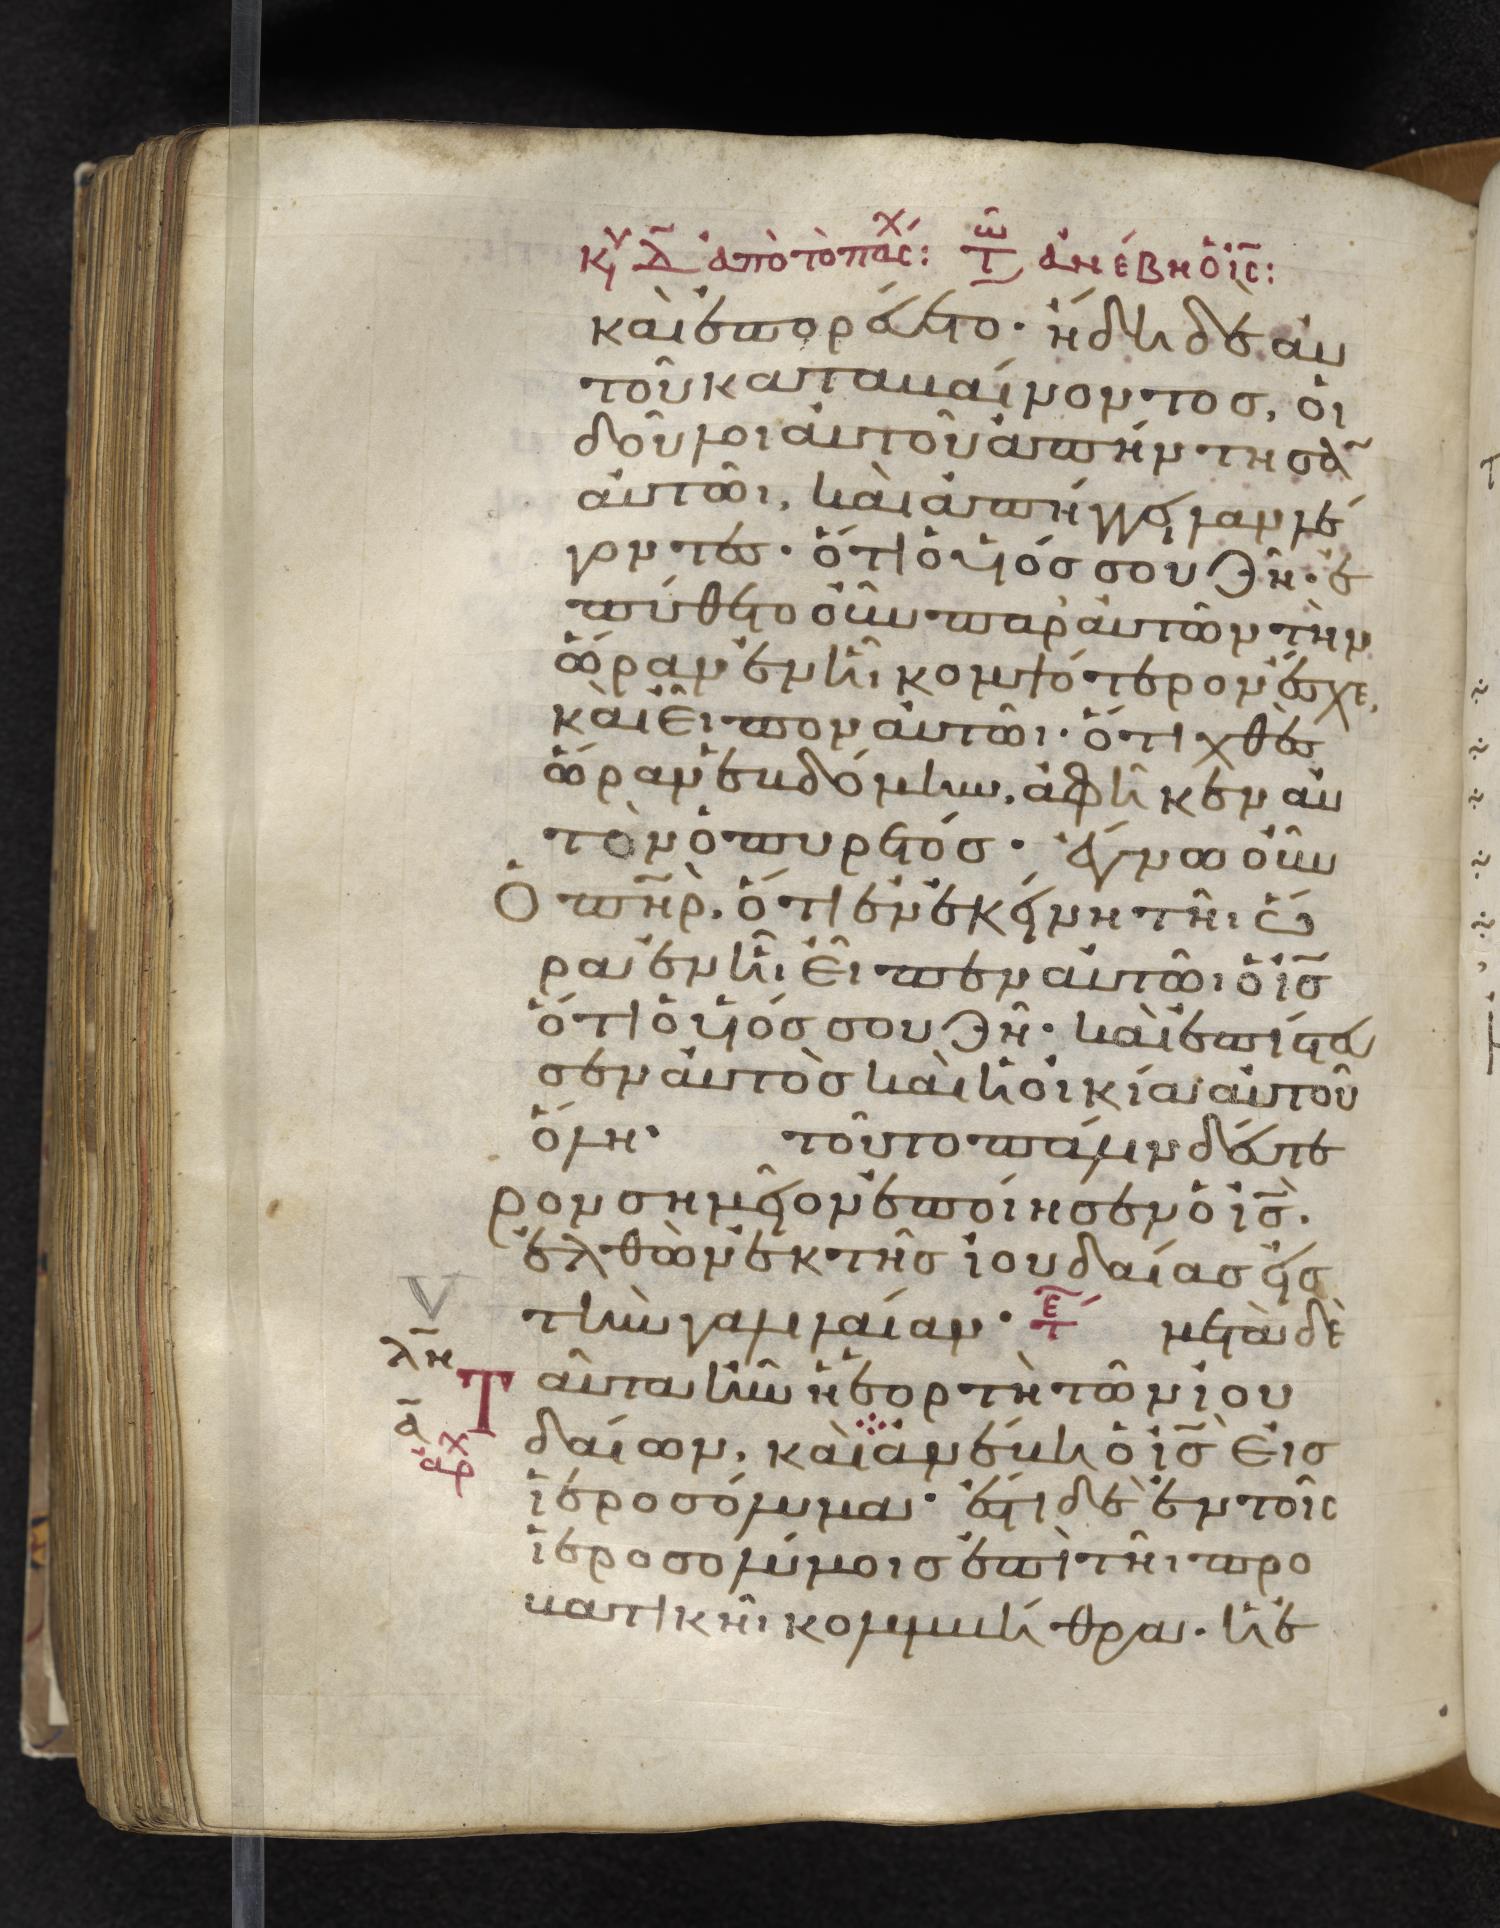 κυ δ ἀπὸ τὸ πασχ: τω ἀνέβη ὁ ις:
καὶ ἐπορεύετο· ἤδη δὲ αὐ
τοῦ καταβαίνοντος, οἱ
δοῦλοι αὐτοῦ ἀπήντησα
αὐτῶι, καὶ ἀπήγγειλαν λέ
γοντες· ὅτι ὁ υἱός σου ζῆ· ἐ
πύθετο οὖν παρ' αὐτῶν τὴν
ὥραν ἐν ἧι κομψότερον ἔσχε,
καὶ εἶπον αὐτῶι· ὅτι χθὲς
ὥραν ἑβδόμην, ἀφῆκεν αὐ
τὸν ὁ πυρετός· ἔγνω οὖν
Ὁ πηρ, ὅτι ἐν ἐκείνη τῆι ὥ
ρα ἐν ἧι εἶπεν αὐτῶι ὁ ις
ὅτι ὁ υἱός σου ζῆ· καὶ ἐπίστευ
σεν αὐτὸς καὶ ἡ οἰκία αὐτοῦ
ὅλη· τοῦτο πάλιν δεύτε
ρον σημεῖον ἐποίησεν ὁ ις.
ἐλθὼν ἐκ τῆς ἰουδαίας εἰς
τὴν γαλιλαίαν· τε μετὰ δὲ
λη
Ταῦτα ἦν ἡ ἑορτὴ τῶν ἰου
α
δαίων, καὶ ἀνέβη ὁ ις εἰς
αρχ
ἱεροσόλυμα· ἔστι δὲ ἐν τοῖς
ἱεροσολύμοις ἐπὶ τῆι προ
βατικῆι κολυμβήθρα· ἡ ἐ